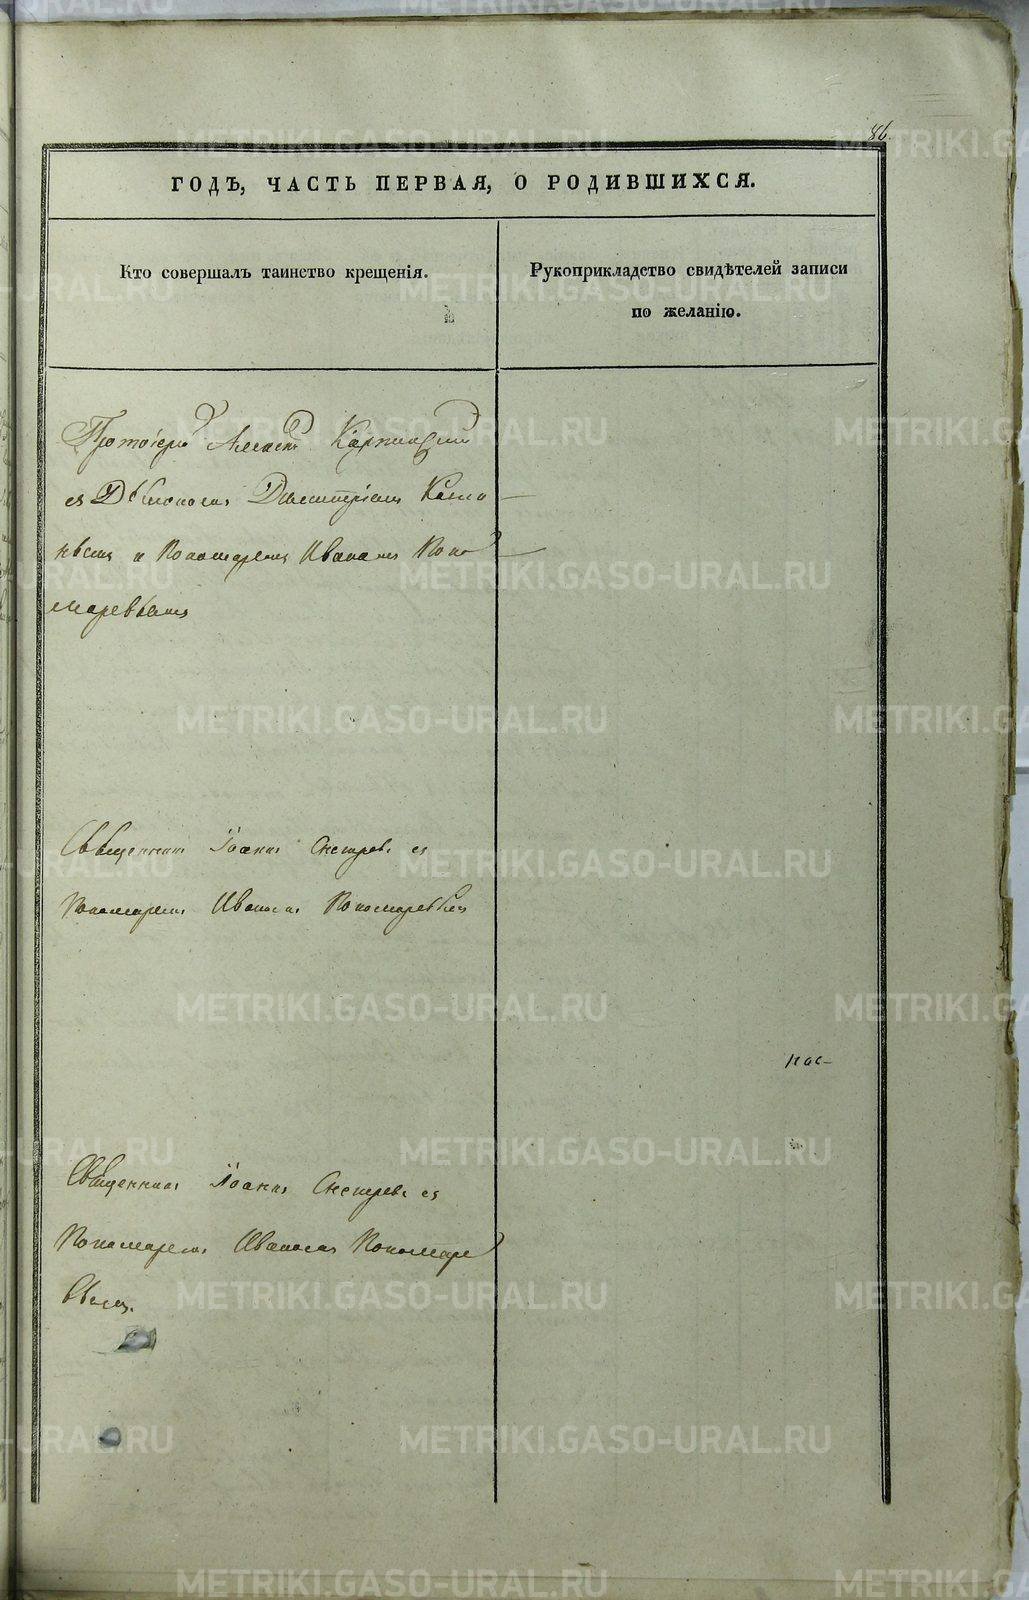 86.
ГОДЪ, ЧАСТЬ ПЕРВАЯ, О РОДИВШИХСЯ.
Кто совершалъ таинство крещенія.
Рукоприкладство свидѣтелей записи
по желанію.
Протоіерей Карпинскій
съ Діакономъ Димитріемъ
и Пономаремъ Иваномъ Поно
маревымъ
Священникъ Іоаннъ съ
Пономаремъ Иваномъ Пономаревымъ
Священникъ Іоаннъ съ
Пономаремъ Иваномъ Пономаре
вымъ.
METRIKI.GASO-URAL.RU